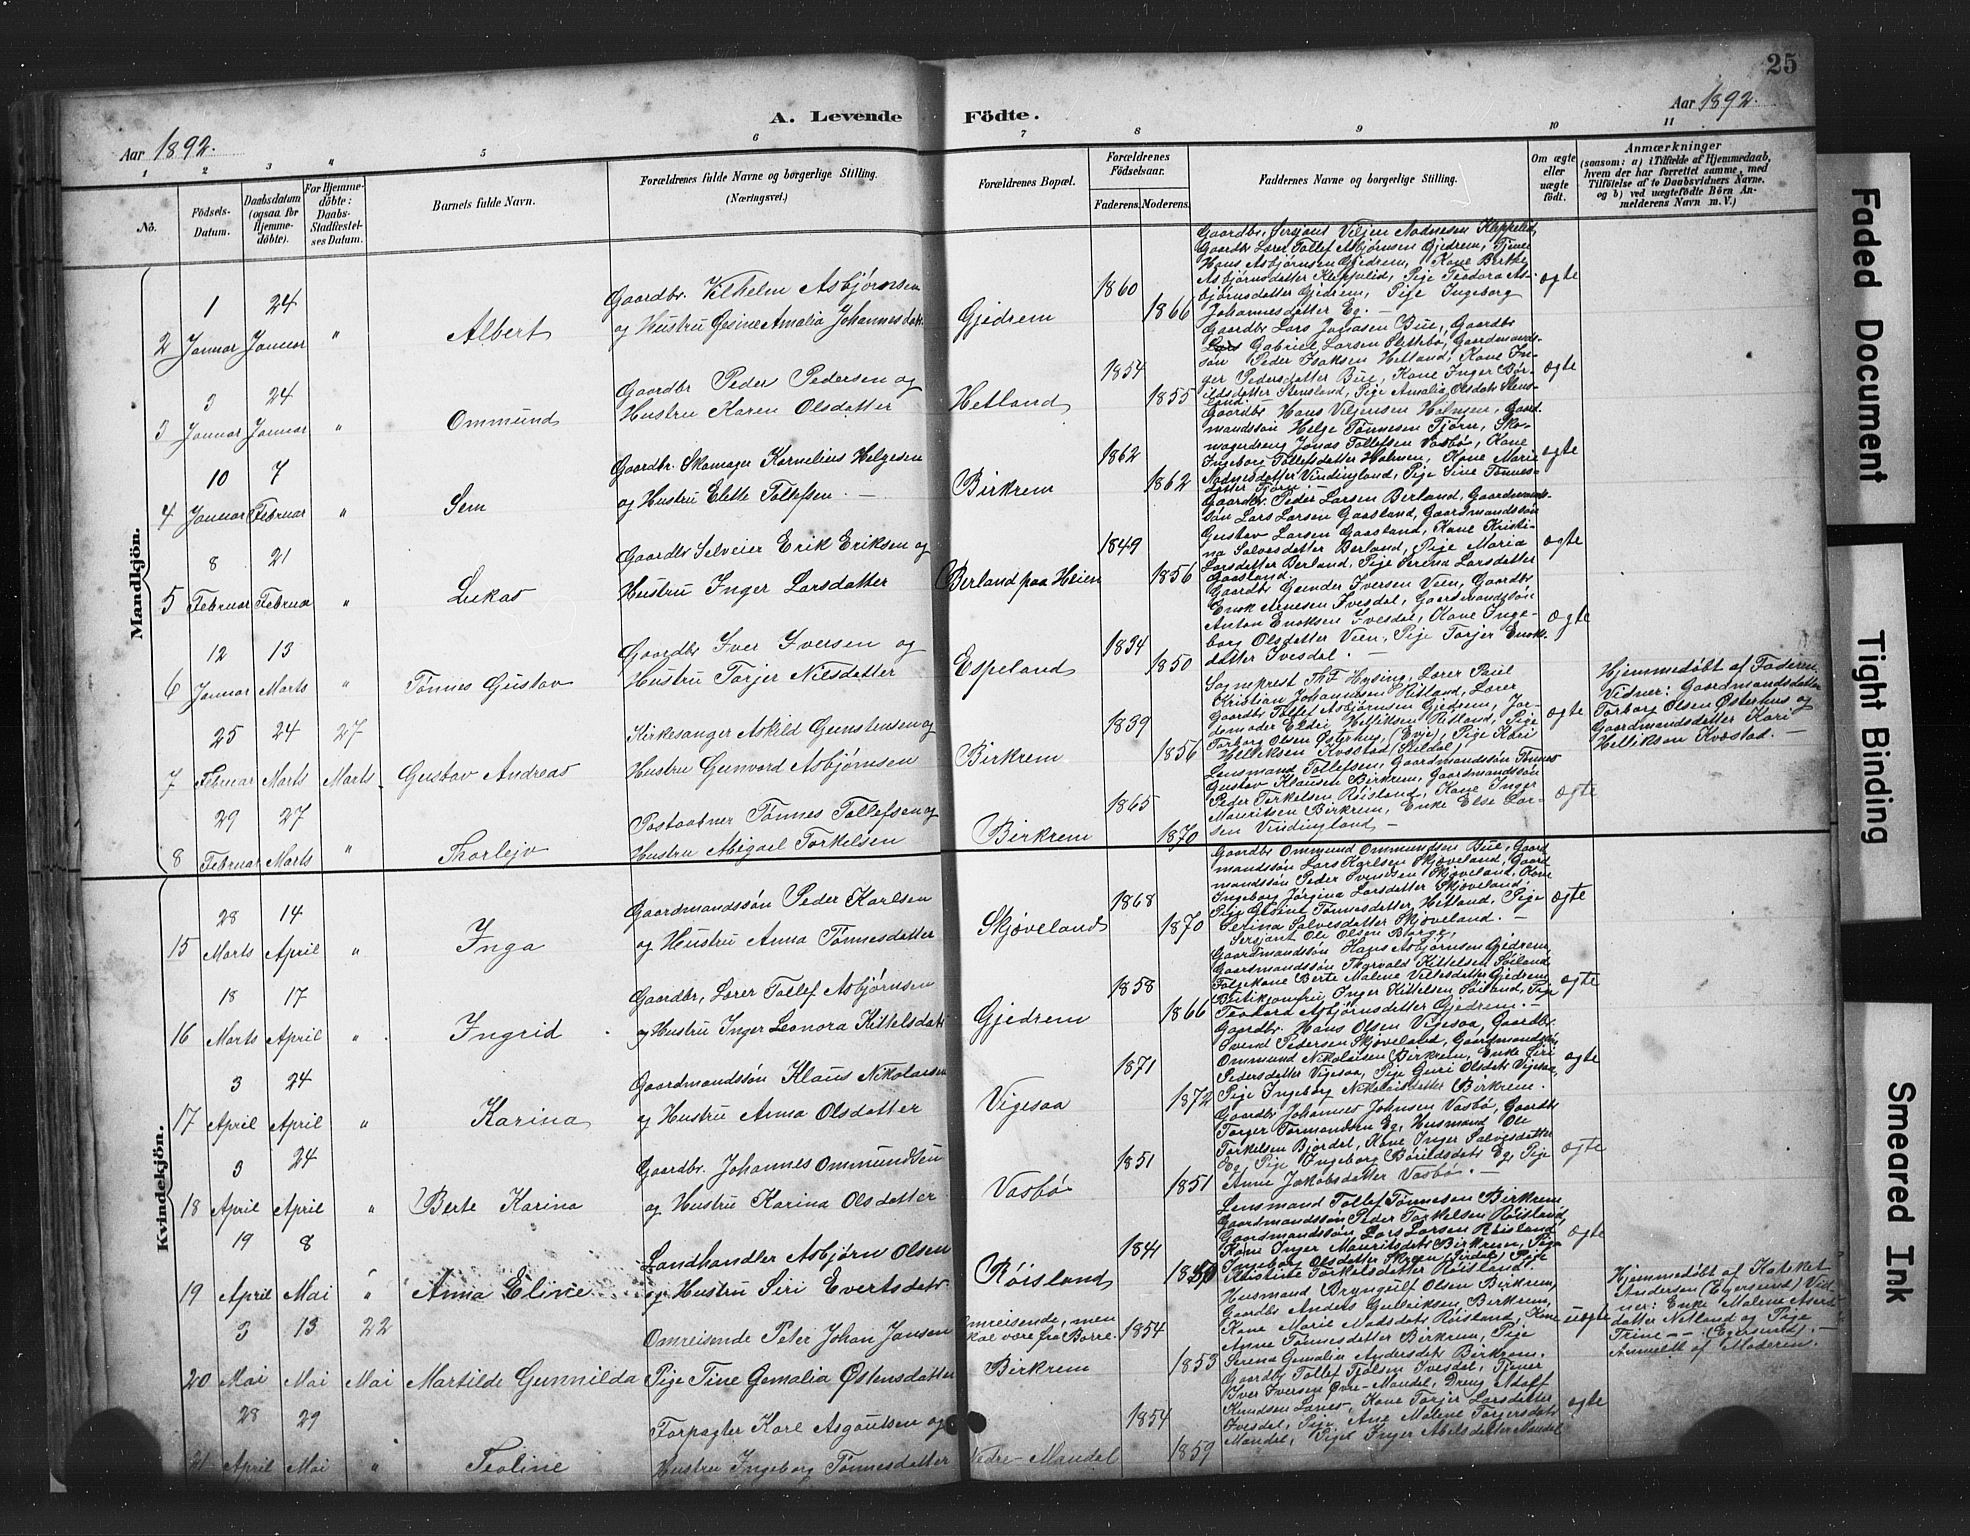 25
A. Levende Födte.
Aar 1892.
Aar 1892.
1 2 3 " 5 6 7 8 9 10 11
No.
Födsels-Datum.
Daabsdatum (ogsaa for Hjemmedöbte).
For Hjemmedöbte: Daabs-Stadfæstelses Datum.
Barnets fulde Navn.
Forældrenes fulde Navne og borgerlige Stilling. (Næringsvei.)
Forældrenes Bopæl.
Forældrenes Födselsaar.
Faderens. Moderens.
Faddernes Navne og borgerlige Stilling.
Om ægte eller uægte födt.
Anmærkninger
(saasom: a) i Tilfælde af Hjemmedaab,
hvem der har forrettet samme, med
Tilföielse af to Daabsvidners Navne.
og b) ved uægtefödte Börn An-
melderens Navn m. V.)
Mandkjön.
2 1 Januar 24 Januar " Albert
Gaardbr. Vilhelm Asbjørnsen
og Hustru Gesine Amalia Johannesdatt.
Gjedrem 1860 1866
Gaardbr. Sersjant Viljen Aadnesen Kleppelid,
Gaardbr. Lærer Tollef Asbjørnsen Gjedrem, Tjener
Hans Asbjørnsen Gjedrem, Kone Berthe
Asbjørnsdatter Kleppelid, Pige Teodora As-
bjørnsdatter Gjedrem, Pige Ingeborg
Johannesdatter Eg. —
ægte
3 3 Januar 24 Januar " Ommund
Gaardbr Peder Pedersen og
Hustru Karen Olsdatter
Hetland 1854 1855
Gaardbr Lars Jonasen Bue, Gaardbr
Gabriel Larsen Slettebø, Gaardmands-
søn Peder Isaksen Hetland, Kone In-
ger Pedersdatter Bue, Kone Inger Bør-
ildsdatter Stensland, Pige Amalia Olsdatr Stens-
land.
ægte
4 10 Januar 7 Februar " Sem
Gaardbr. Skomager Kornelius Helgesen
og Hustru Elette Tollefsen. —
Birkrem 1862 1862
Gaardbr Hans Viljensen Holmen, Gaard-
mandssøn Helge Tønnesen Tjørn, Sko-
magerdreng Jonas Tollefsen Vasbø, Kone
Ingeborg Tollefsdatter Holmen, Kone Marie
Aadnesdatter Vindingland, Pige Sine Tønnes-
datter Tjørn. —
ægte
5 8 Februar 21 Februar " Lukas
Gaardbr Selveier Erik Eriksen og
Hustru Inger Larsdatter
Berland paa Heien 1849 1856
Gaardbr. Peder Larsen Berland, Gaardmands-
søn Lars Larsen Gaasland, Gaardmandssøn
Gustav Larsen Gaasland, Kone Kristi-
na Salvesdatter Berland, Pige Maria
Larsdatter Berland, Pige Serina Larsdatter
Gaasland.
ægte
6 12 Januar 13 Marts " Tønnes Gustav
Gaardbr Iver Iversen og
Hustru Torjer Nilsdatter
Espeland 1834 1850
Gaardbr Iversen Vien, Gaardbr
Enok Arnesen Ivesdal, Gaardmandssøn
Anton Enoksen Ivesdal, Kone Inge-
borg Olsdatter Vien, Pige Torjer Enok-
datter Ivesdal. —
ægte
7 25 Februar 24 Marts 27 Marts Gustav Andreas
Kirkesanger Askild Gunstensen og
Hustru Gunvord Asbjørnsen
Birkrem 1839 1856
Sogneprest Th. F. Hysing, Lærer Paul
Kristian Johannesen Hetland, Lærer
Gaardbr Tollef Asbjørnsen Gjedrem, Jor-
demoder Eldri Helliksen Røtland, Pige
Torborg Olsen Østerhus, (Evje), Pige Kari
Helliksen Kvæstad
ægte
Hjemmedøbt af Faderen
Vidner: Gaardmandsdatter
Torborg Olsen Østerhus og
Gaardmandsdatter Kari
Helliksen Kvæstad. —
8 29 Februar 27 Marts " Thorlejv
Postaabner Tønnes Tollefsen og
Hustru Abigael Torkelsen
Birkrem 1865 1870
Lensmand Tollefsen, Gaardmandssøn Tønnes
Gustav Klausen Birkrem, Gaardmandssøn
Peder Torkelsen Røisland, Kone Inger
Mauritsen Birkrem, Enke Else Lar-
sen Vindingland —
ægte
Kvindekjön.
15 28 Marts 14 April " Inga
Gaardmandssøn Peder Karlsen
og Hustru Anna Tønnesdatter
Skjæveland 1868 1870
Gaardbr Ommund Ommundsen Bue, Gaard-
mandssøn Lars Karlsen Skjæveland, Gaard-
mandssøn Peder Svendsen Skjæveland, Kone
Ingeborg Jørgina Larsdatter Skjæveland,
Pige Gesine Tønnesdatter Hetland, Pige
Serina Salvesdatter Skjæveland. —
ægte
16 18 Marts 17 April " Ingrid
Gaardbr, Lærer Tollef Asbjørnsen
og Hustru Inger Leonora Kittelsdatr
Gjedrem 1858 1866
Sersjant Ole Olsen Borge,
Gaardmandssøn Hans Asbjørnsen Gjedrem,
Gaardmandssøn Thorvald Kittelsen Søiland,
Følgekone Berte Malene Villesdatter Gjedrem,
Butikjomfru Inger Kittelsen Søiland, Pige
Teodora Asbjørnsdatter Gjedrem. —
ægte
17 3 April 24 April " Karina
Gaardmandssøn Klaus Nikolaisen
og Hustru Anna Olsdatter
Vigesaa 1871 1872
Gaardbr. Hans Olsen Vigesaa, Gaardbr.
Svend Pedersen Skjæveland, Gaardmandssøn
Ommund Nikolaisen Birkrem, Enke Siri
Pedersdatter Vigesaa, Pige Guri Olsdatr Vigesaa,
Pige Ingeborg Nikolaisdatter Birkrem.
ægte
18 3 April 24 April " Berte Karina
Gaardbr. Johannes Ommundsen
og Hustru Karina Olsdatter
Vasbø 1851 1851
Gaardbr Johannes Johnsen Vasbø, Gaardbr
Torger Tormundsen Eg, Husmand Ole
Torkelsen Bjordal, Kone Inger Salvesdatter
Eg, Pige Ingeborg Børildsdatr Eg, Pige
Anne Jakobsdatter Vasbø. —
ægte
19 19 April 8 Mai " Anna Eline
Landhandler Asbjørn Olsen
og Hustru Siri Evertsdatr
Røisland 1841 1850
Lensmand Tollef Tønnesen Birkrem,
Gaardmandssøn Peder Torkelsen Røisland,
Gaardmandssøn Lars Larsen Røisland,
Kone Inger Mauritsdatr Birkrem, Pige
Ingeborg Olsdatter Skreen (Sirdal), Pige
Kristine Torkelsdatter Røisland,
ægte
20 3 Mai 13 Mai 22 Mai Martilde Gunnilda
Omreisende Peter Johan Jansen
Pige Tine Gemalia Østensdatter
Omreisende, men
skal være fra Borre
Birkrem 1854 1853
Husmand Bryngulf Olsen Birkrem,
Gaardbr Anders Gulleiksen Birkrem,
Kone Marie Madsdatr Røisland, Kone
Anne Tønnesdatter Birkrem, Pige
Serena Gemalia Andersdatr Birkrem.
uægte
Hjemmedøbt af Kateket
Andersen (Egersund) Vid-
ner: Enke Malene
datter Netland og Pige
Trine — — (Egersund). —
Anmeldt af Moderen.
21 28 April 29 Mai " Teoline
Forpagter Karl Asgautsen og
Hustru Ingeborg Tønnesdatter
Nedre-Maudal 1854 1859
Gaardbr Tollef Tjølsen Ivesdal, Tjener
Iver Iversen Øvre-Maudal, Dreng Adolf
Knudsen Lanes, Kone Torjer Larsdatter
Ivesdal, Pige Ane Malene Torgersdatr
Maudal, Pige Inger Abelsdatter Maudal
ægte
Faded Document
Tight Binding
Smeared Ink